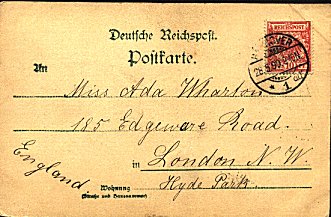 Deutsche Reichspost.
Postkarte.
REICHSPOST
HANNOVER
An
Miss Ada Wharton
185 Edgeware Road.
England.
in London N. W.
Wohnung
Hyde Park
(Straße und Hausnummer)
* 1